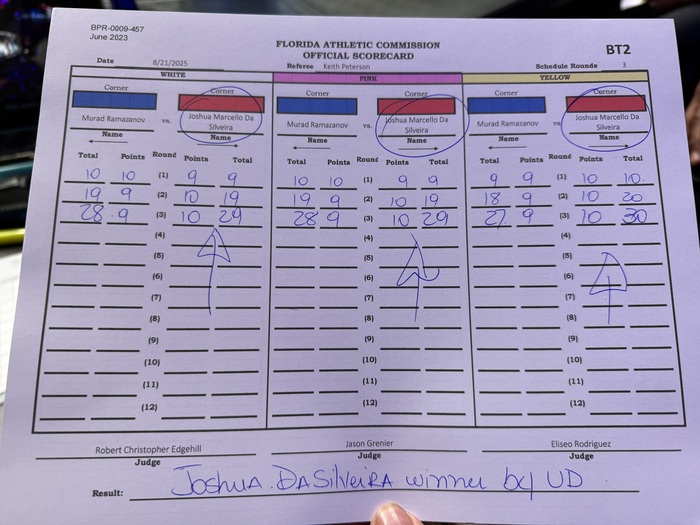 BPR-0009-457
June 2023
FLORIDA ATHLETIC COMMISSION
BT2
OFFICIAL SCORECARD
Date 8/21/2025 Referee Keith Peterson Schedule Rounds 3
WHITE PINK YELLOW
Corner Corner Corner Corner Corner Corner
Murad Ramazanov vs. Joshua Marcello Da Silveira Murad Ramazanov vs. Joshua Marcello Da Silveira Murad Ramazanov vs. Joshua Marcello Da Silveira
Name Name Name Name Name Name
Total Points Round Points Total Total Points Round Points Total Total Points Round Points Total
10 10 (1) 9 9 10 10 (1) 9 9 9 9 (1) 10 10
19 9 (2) 10 19 19 9 (2) 10 19 18 9 (2) 10 20
28 9 (3) 10 29 28 9 (3) 10 29 27 9 (3) 10 30
(4) (4) (4)
(5) (5) (5)
(6) (6) (6)
(7) (7) (7)
(8) (8) (8)
(9) (9) (9)
(10) (10) (10)
(11) (11) (11)
(12) (12) (12)
Robert Christopher Edgehill Jason Grenier Eliseo Rodriguez
Judge Judge Judge
Result: Joshua DaSilveira winner by UD